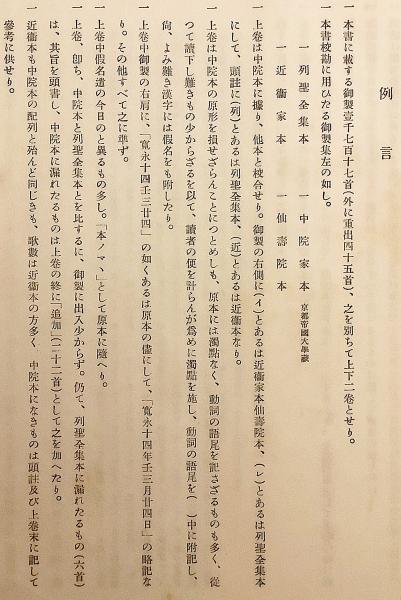 例言
一 本書に載する御製壹千七百十七首(外に重出四十五首)、之を別ちて上下二卷とせり。
一 本書校勘に用ひたる御製集左の如し。
一 列聖全集本 一 中院家本 京都帝國大學藏
一 近衞家本 一 仙壽院本
一 上卷は中院本に據り、他本と校合せり。御製の右側に(イ)とあるは近衞家本仙壽院本、(レ)とあるは列聖全集本
にして、頭註に(列)とあるは列聖全集本、(近)とあるは近衞本なり。
一 上卷は中院本の原形を損せざらんことにつとめしも、原本には濁點なく、動詞の語尾を記さざるものも多く、從
つて讀下し難きもの少からざるを以て、讀者の便を計らんが爲めに濁點を施し、動詞の語尾を( )中に附記し、
尙、よみ難き漢字には假名をも附したり。
一 上卷中御製の右肩に、「寬永十四壬三廿四」の如くあるは原本の儘にして、「寬永十四年壬三月廿四日」の略記な
り。その他すべて之に準ず。
一 上卷中假名遣の今日のと異るもの多し。「本ノマヽ」として原本に隨へり。
一 上卷、卽ち、中院本と列聖全集本とを比するに、御製に出入少からず。仍て、列聖全集本に漏れたるもの(六首)
は、其旨を頭書し、中院本に漏れたるものは上卷の終に「追加」(二十二首)として之を加へたり。
一 近衞本も中院本の配列と殆んど同じきも、歌數は近衞本の方多く、中院本になきものは頭註及び上卷末に記して
參考に供せり。